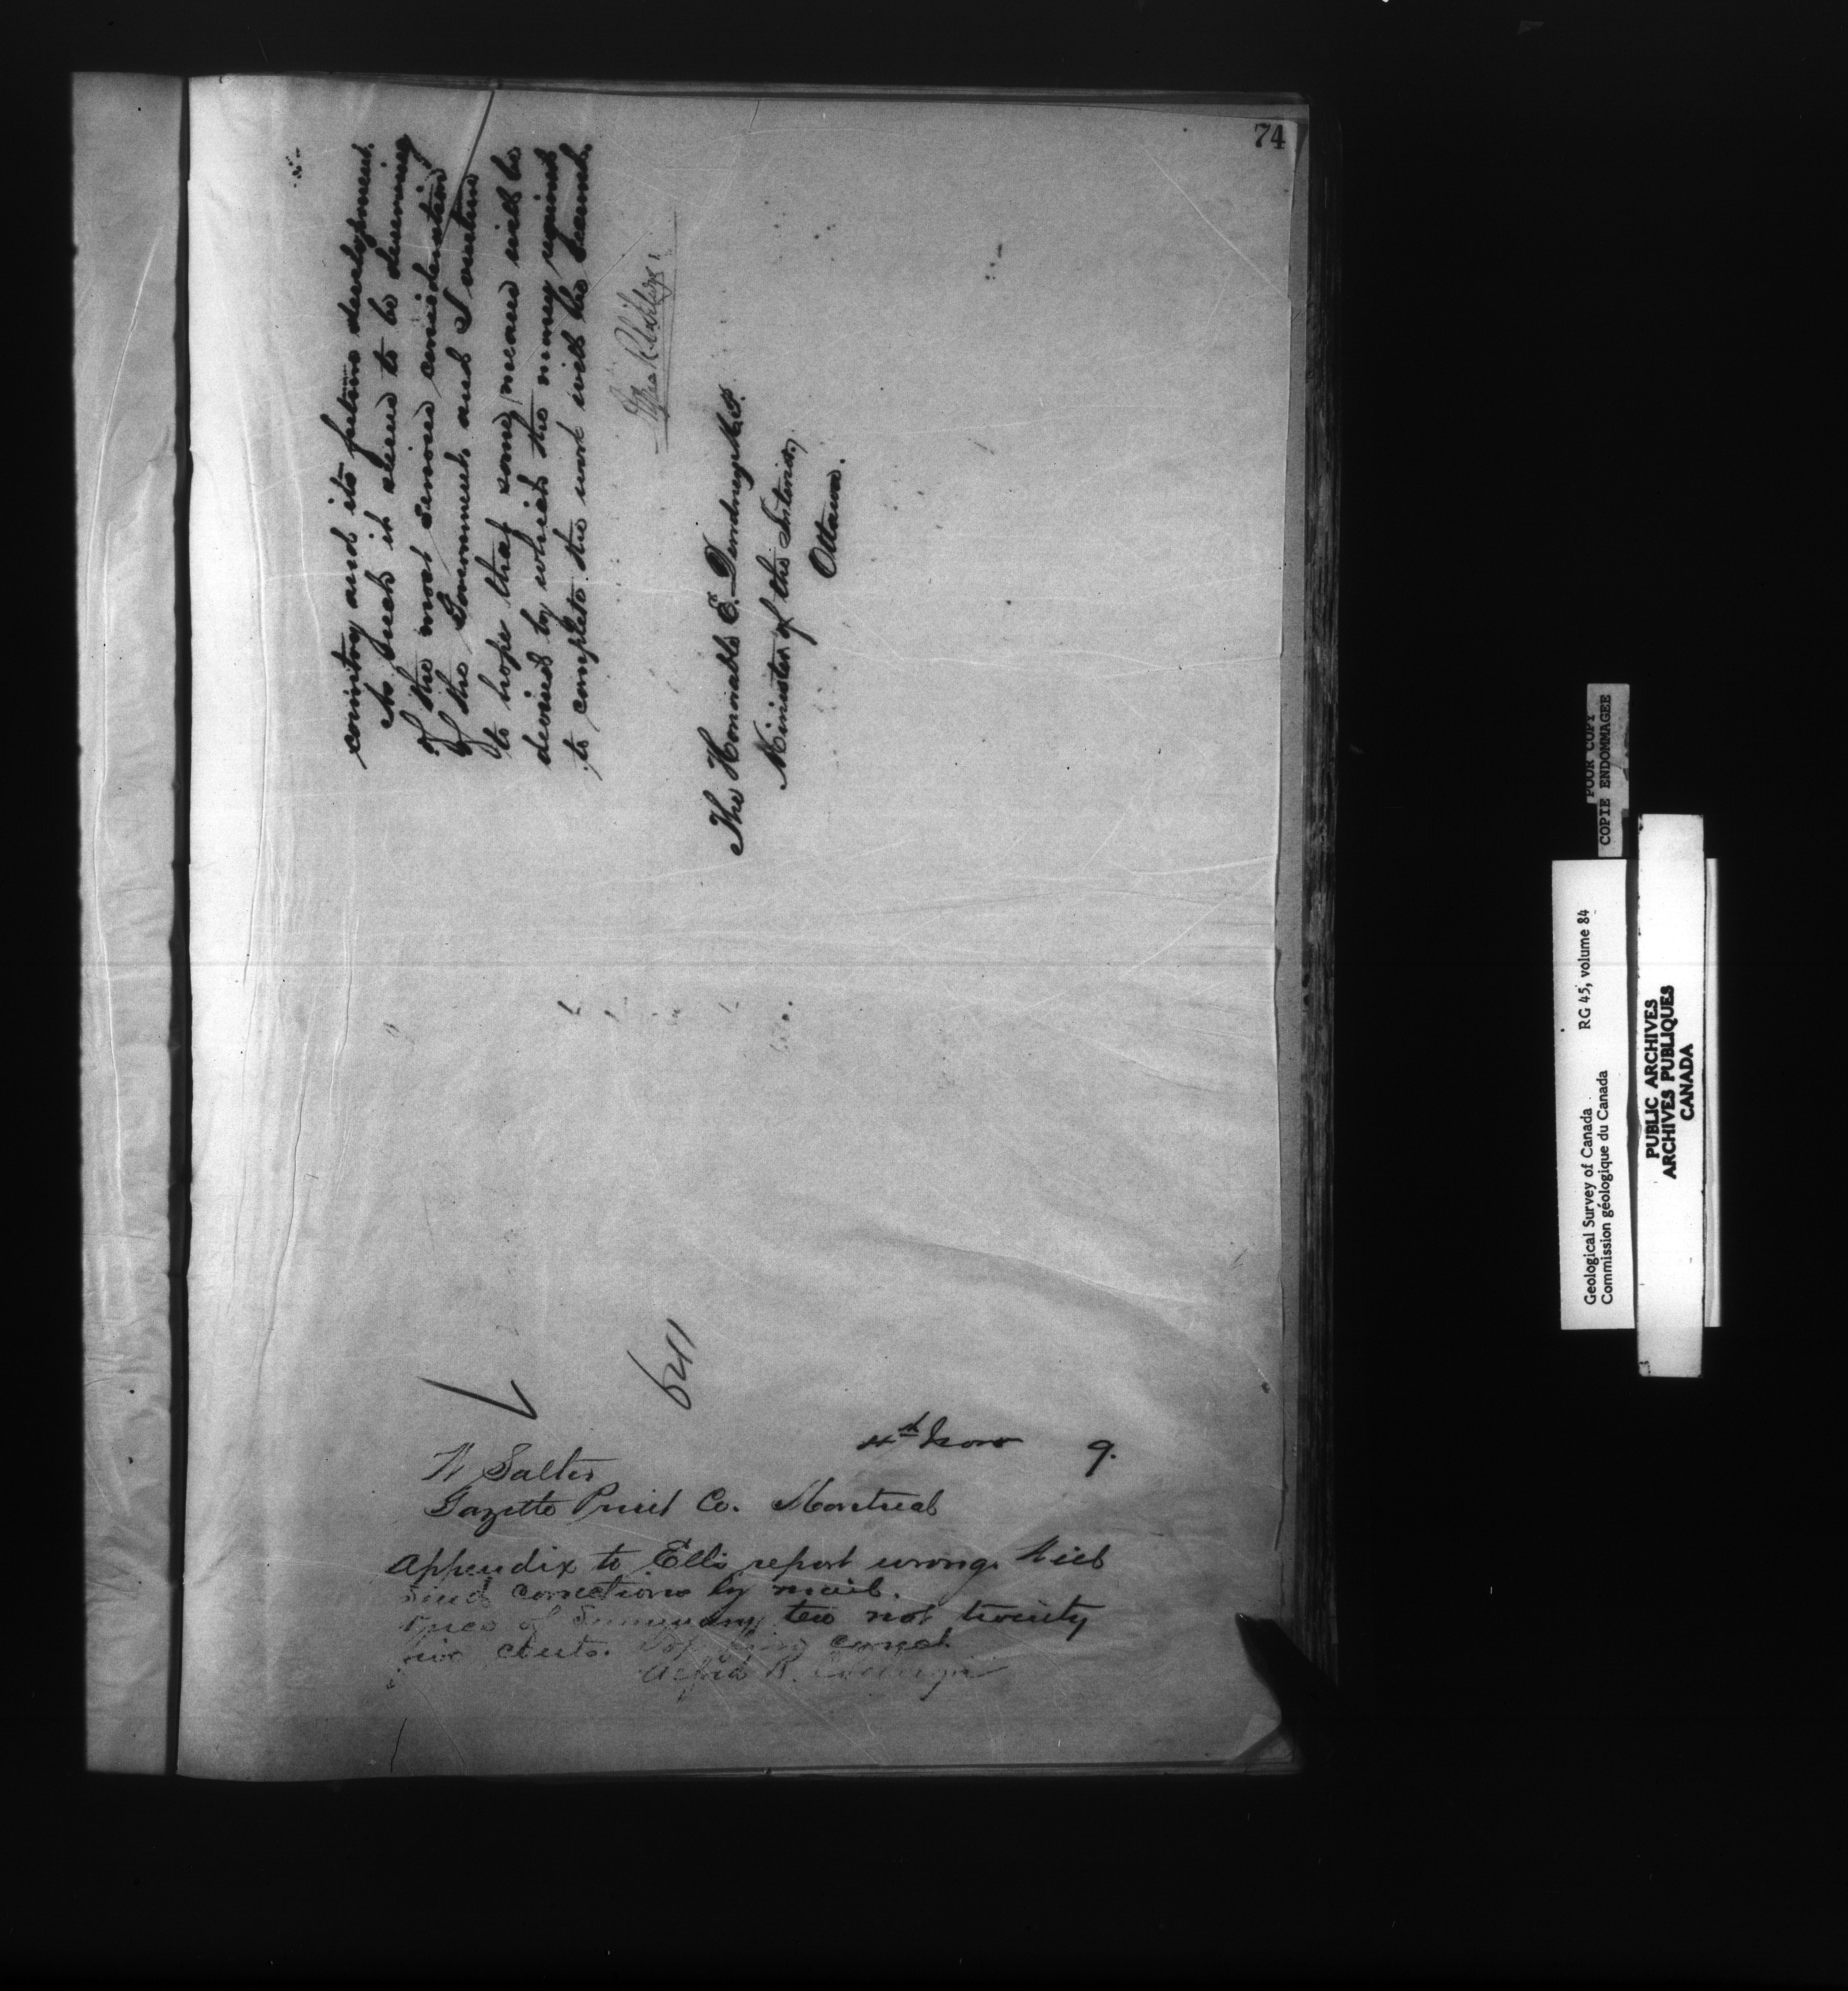 74
country and its future development.
As such it seems to be deserving
of the most serious consideration
of the Government, and I venture
to hope that some means will be
devised by which the money required
to complete the work will be
The Honorable E. Dewdney M.P.
Minister of the Interior,
Ottawa.
641
4th Nov 9.
W Salter
Gazette Print Co. Montreal
Appendix to Ells report wrong. Will
send corrections by mail.
Price of Summary ten not twenty
five cents.
Alfred R.
POOR COPY
COPIE ENDOMMAGEE
Geological Survey of Canada RG 45, volume 84
Commission géologique du Canada
PUBLIC ARCHIVES
ARCHIVES PUBLIQUES
CANADA